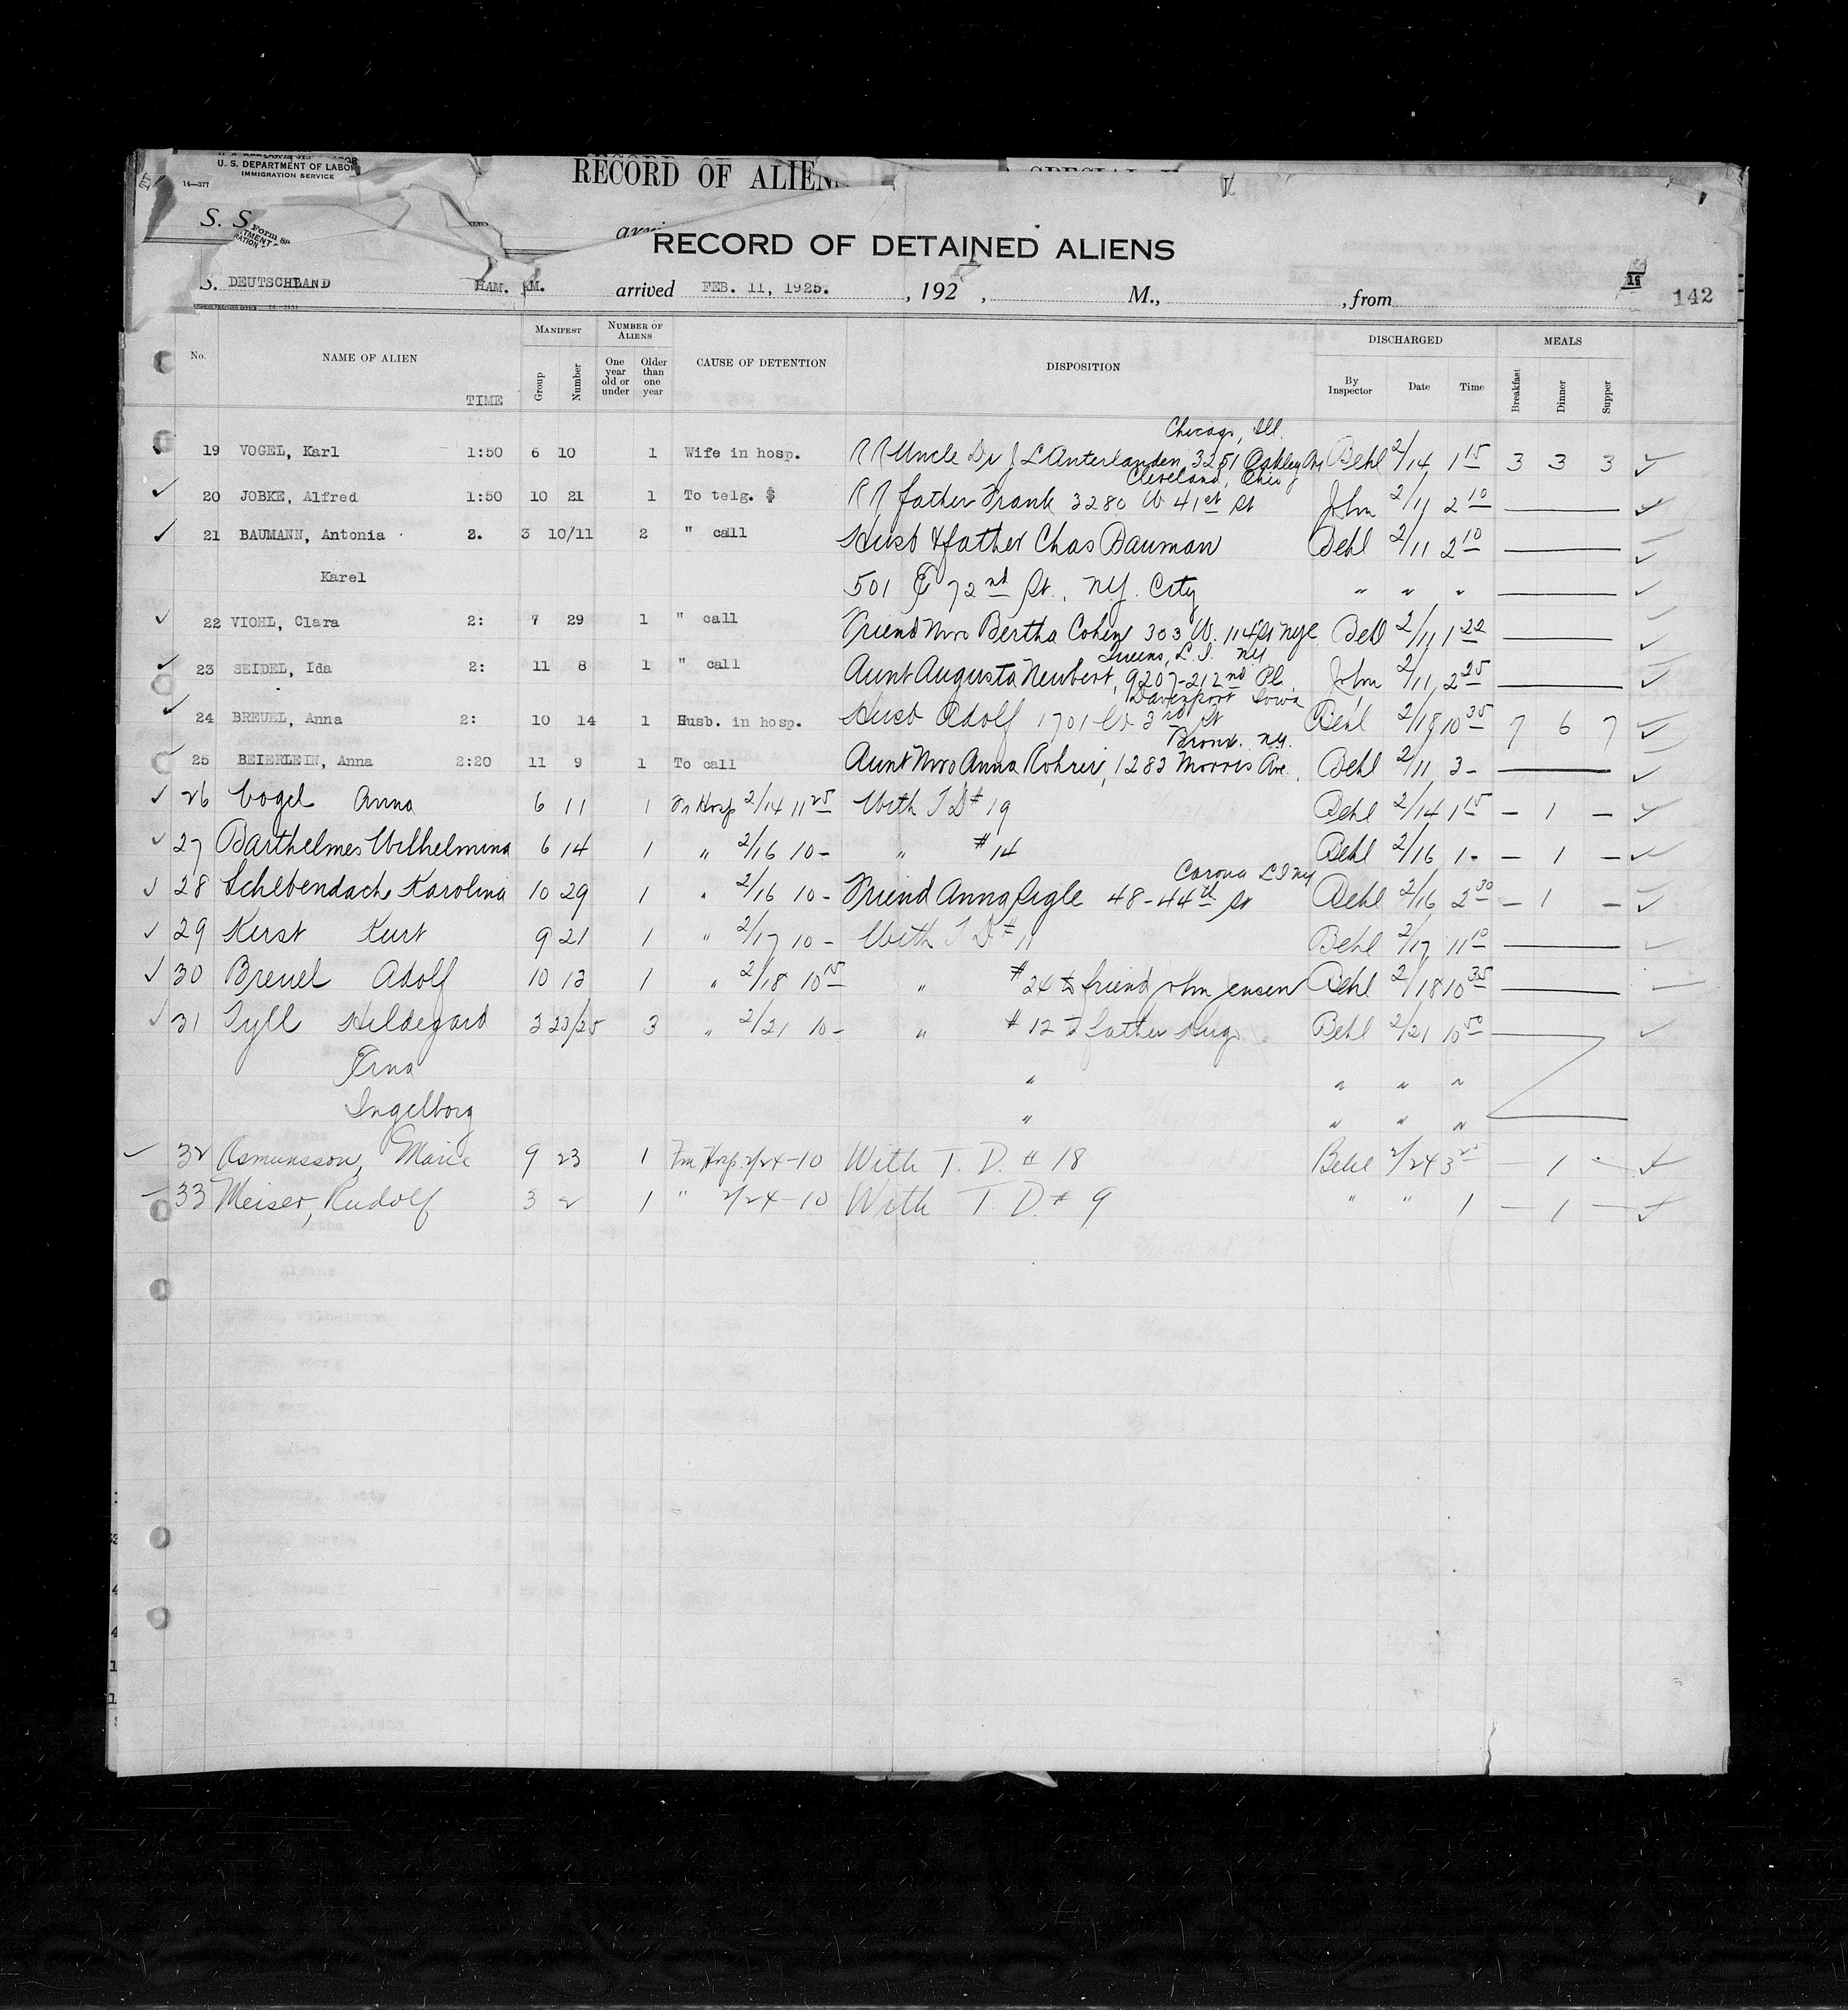 U. S. DEPARTMENT OF LABOR
IMMIGRATION SERVICE
14—377
RECORD OF ALIEN
S. S.
RECORD OF DETAINED ALIENS
S. DEUTSCHLAND HAM. M. arrived FEB. 11, 1925. , 192 , M., , from 142
MANIFEST NUMBER OF ALIENS DISCHARGED MEALS
No. NAME OF ALIEN TIME Group Number One year old or under Older than one year CAUSE OF DETENTION DISPOSITION By Inspector Date Time Breakfast Dinner Supper
Chicago, Ill.
19 VOGEL, Karl 1:50 6 10 1 Wife in hosp. RR Uncle Dr J L Anterlanden 3251 Oakley Av Behl 2/14 1 15 3 3 3
Cleveland, Ohio
20 JOBKE, Alfred 1:50 10 21 1 To telg. $ RR father Frank 3280 W 41st St John 2/11 2 10
21 BAUMANN, Antonia 2. 3 10/11 2 " call Husb & father Chas Bauman Behl 2/11 2 10
Karel 501 E 72nd St., N.Y. City " " "
22 VIOHL, Clara 2: 7 29 1 " call Friend Mrs Bertha Cohen 303 W. 114 St NYC Behl 2/11 1 22
Queens, L.I. NY
23 SEIDEL, Ida 2: 11 8 1 " call Aunt Augusta Neubert, 9207-212nd Pl. John 2/11 2 25
Davenport Iowa
24 BREUEL, Anna 2: 10 14 1 Husb. in hosp. Husb Adolf 1701 W 3rd St Behl 2/18 10 35 7 6 7
Bronx. NY.
25 BEIERLEIN, Anna 2:20 11 9 1 To call Aunt Mrs Anna Rohrer, 1283 Morris Ave. Behl 2/11 3-
26 Vogel Anna 6 11 1 Fm Hosp 2/14 11 25 With T D # 19 Behl 2/14 1 15 – 1 –
27 Barthelmes Wilhelmina 6 14 1 " 2/16 10- " # 14 Behl 2/16 1- – 1 –
Corona L I NY
28 Schebendach Karolina 10 29 1 " 2/16 10- Friend Anna Sigle 48-44th St Behl 2/16 2 30 – 1 –
29 Kerst Kurt 9 21 1 " 2/17 10- With T D # 11 Behl 2/17 11 10
30 Breuel Adolf 10 13 1 " 2/18 10 15 " # 24 to friend John Jensen Behl 2/18 10 35
31 Tyll Hildegard 3 23/25 3 " 2/21 10- " # 12 to father Hugo Behl 2/21 10 50
Erna " " " "
Ingelborg " " " "
32 Osmunsson, Marie 9 23 1 Fm Hosp. 2/24-10 With T. D. # 18 Behl 2/24 3 25 – 1 –
33 Meiser, Rudolf 3 2 1 " 2/24-10 With T. D. # 9 " " 1 – 1 –